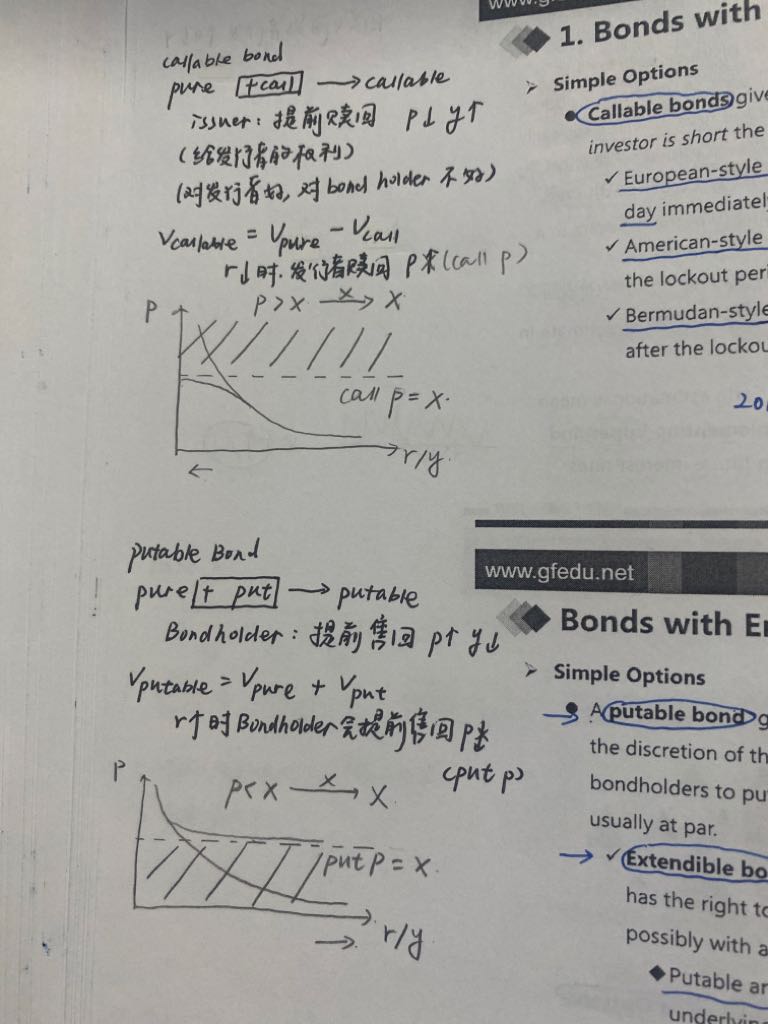 callable bond
pure +call → callable
issuer: 提前赎回 P↓ y↑
(给发行者的权利)
(对发行者好, 对 bond holder 不好)
Vcallable = Vpure - Vcall
r↓时. 发行者赎回 P (call p)
P > X —x→ X
P
call p = X.
r/y
←
putable Bond
pure + put → putable
Bondholder: 提前售回 p↑ y↓
Vputable = Vpure + Vput
r↑时 Bondholder会提前售回 P
(put p)
P
P< X —x→ X
put P = X.
→ r/y
1. Bonds with
➢ Simple Options
● Callable bonds give
investor is short the
✓ European-style
day immediately
✓ American-style
the lockout peri
✓ Bermudan-style
after the lockou
www.gfedu.net
Bonds with E
➢ Simple Options
→ ● A putable bond g
the discretion of th
bondholders to pu
usually at par.
→ ✓ Extendible bo
has the right to
possibly with a
◆Putable ar
underlying